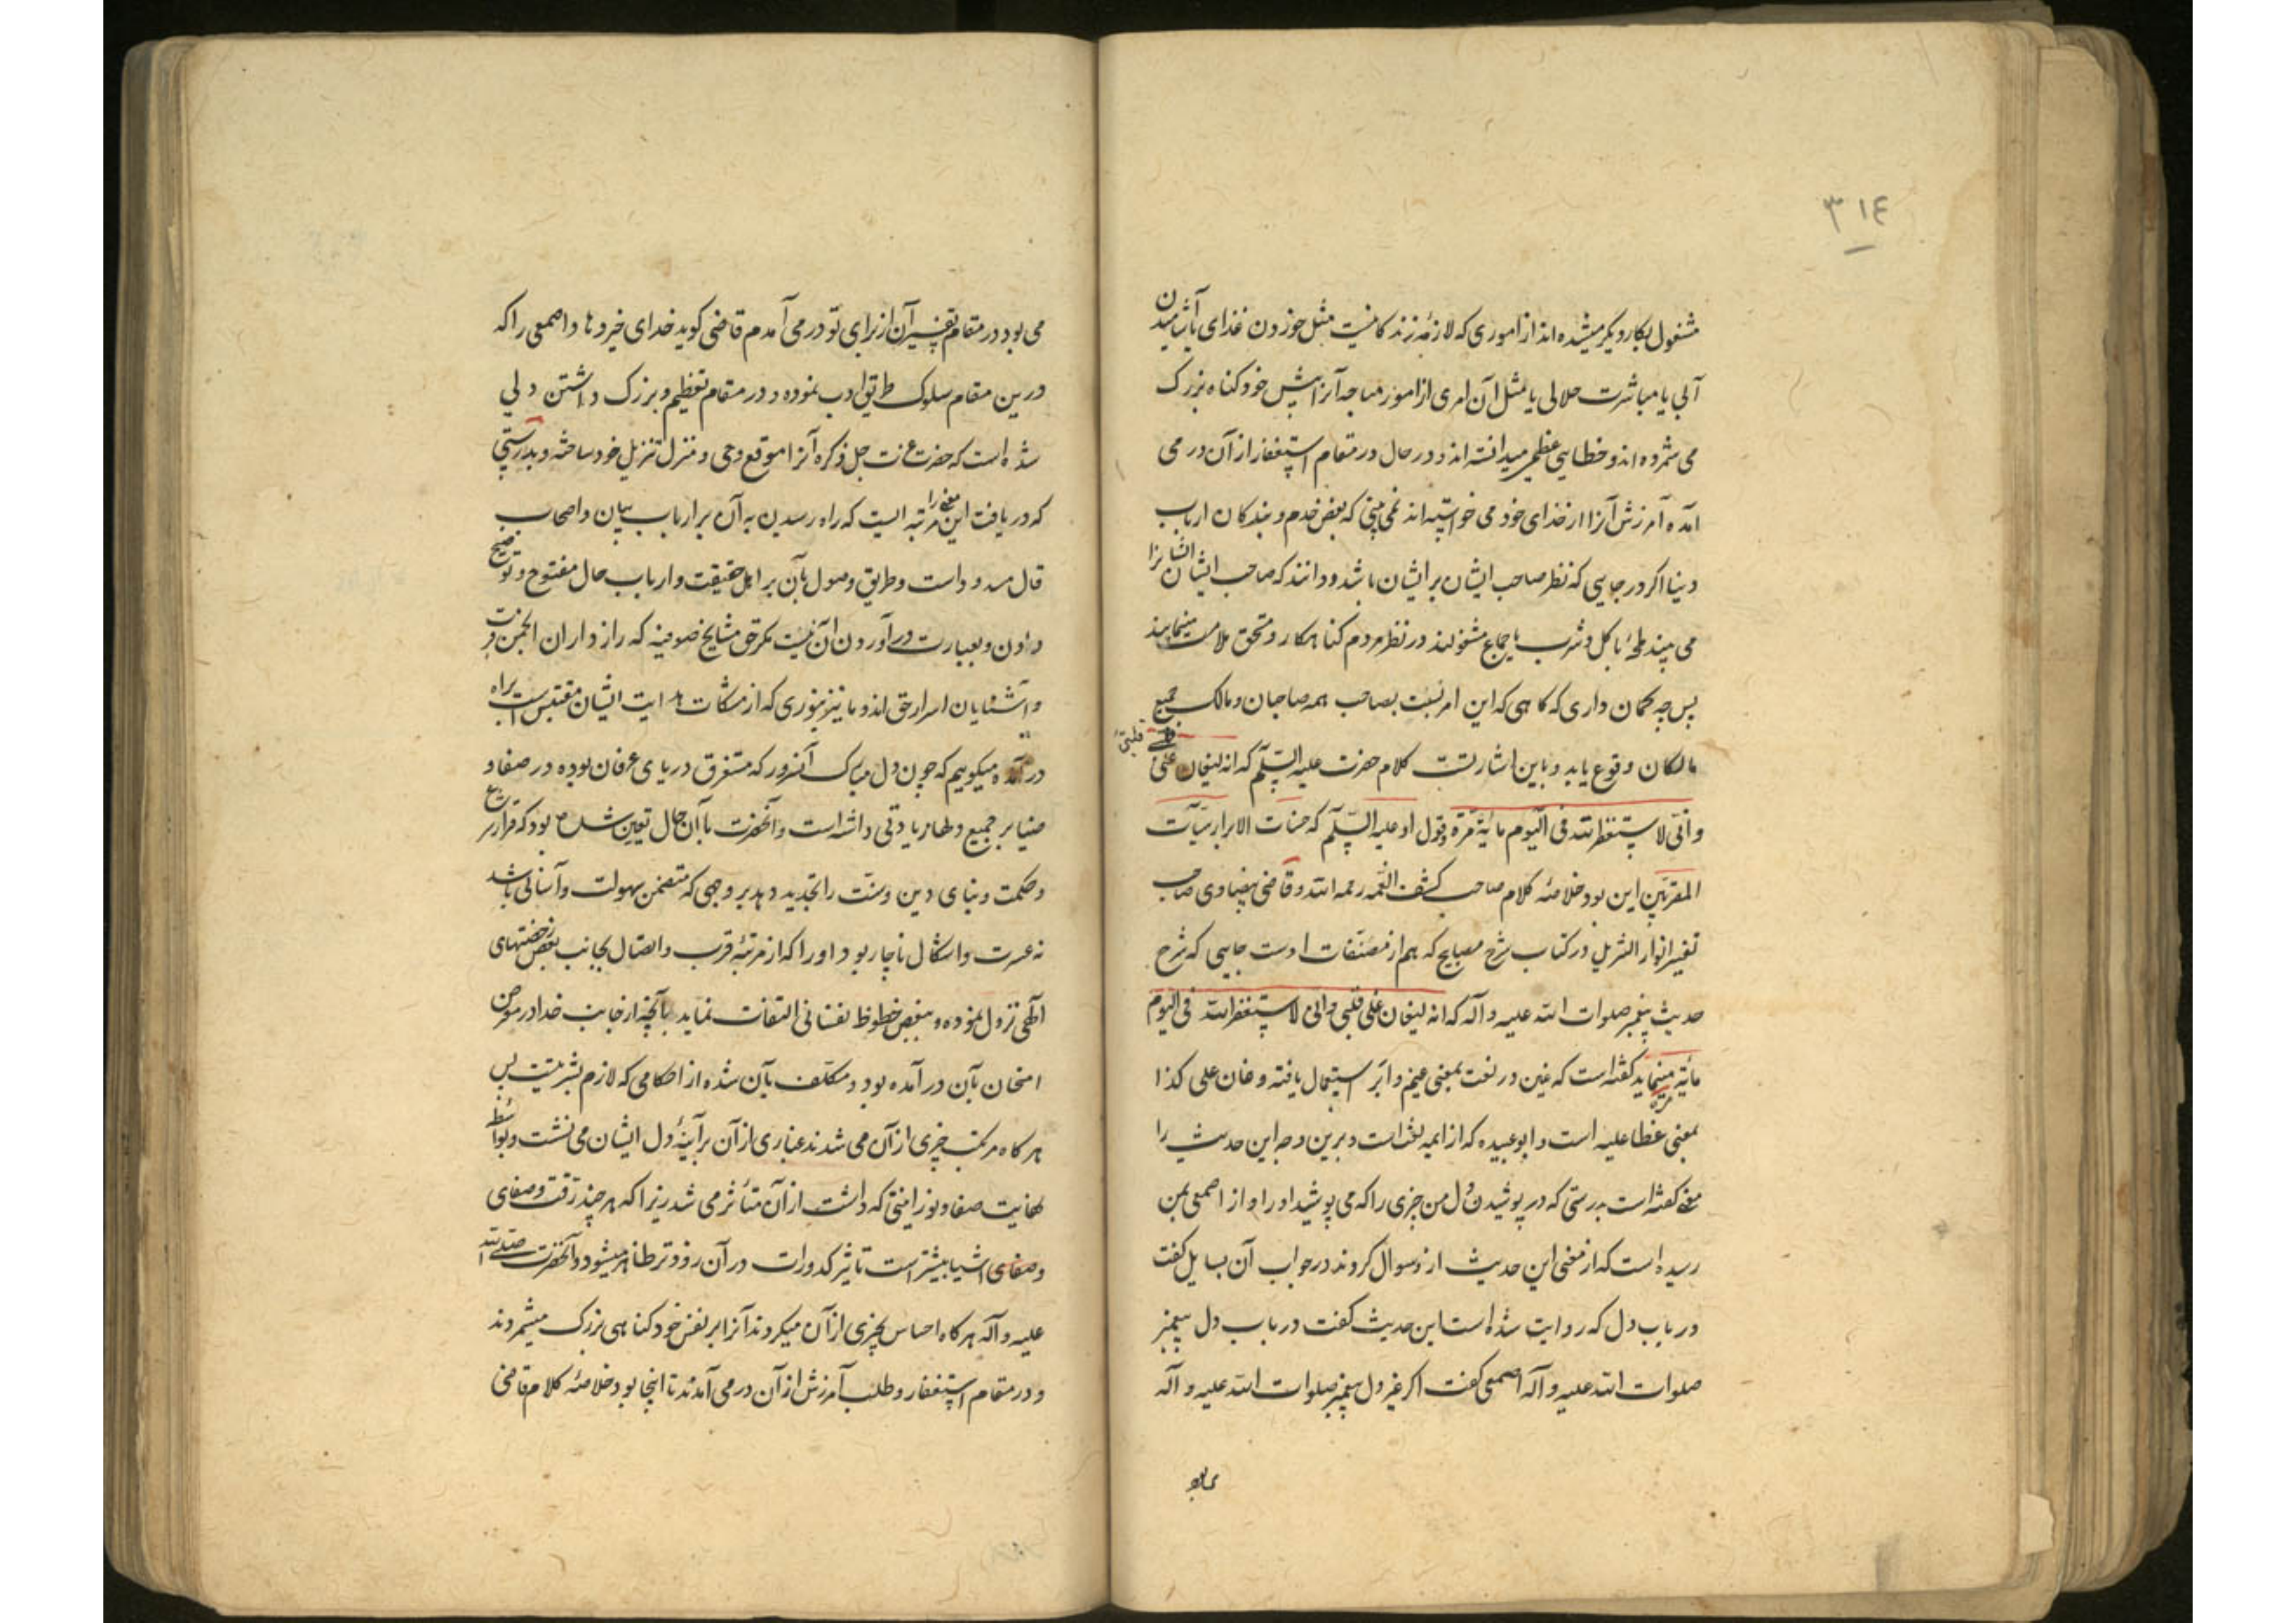 ٣١٤
مشغول بکار دیکر میشده اند از اموری که لازمۀ زندکانیست مثل خوردن غذای یا آشامیدن
آبی یا مباشرت حلالی یا مثل آن امری از امور مباحه آنرا پیش خود کناه بزرک
می شمرده اند و خطایی عظیم میدانسته اند و در حال در مقام استغفار از آن در می
آمده آمرزش آنرا از خدای خود می خواسته اند نمی بینی که بعض خدم و بندکان ارباب
دنیا اکر در جایی که نظر صاحب ایشان بر ایشان باشد و دانند که صاحب ایشان ایشانرا
می بیند باکل و شرب یا جماع مشغولند در نظر مردم کناهکار و مستحق ملامت مینمایند
پس چه کمان داری که کاهی که این امر نسبت بصاحب همه صاحبان و مالک جمیع
مالکان وقوع یابد و باین اشارتست کلام حضرت علیه السلم که انه لیغان علی قلبی
وانی لاستغفر الله فی الیوم مایة مرة وقول او علیه السلم که حسنات الابرار سیآت
المقربین این بود خلاصۀ کلام صاحب کشف الغمه رحمه الله و قاضی بیضاوی صاحب
تفسیر انوار التنزیل در کتاب شرح مصابیح که هم از مصنفات اوست جایی که شرح
حدیث پیغمبر صلوات الله علیه و آله که انه لیغان علی قلبی وانی لاستغفر الله فی الیوم
مایة مرة مینماید کفته است که غین در لغت بمعنی غیم و ابر استعمال یافته و غان علی کذا
بمعنی غطا علیه است و ابو عبیده که از ایمه لغت است و برین وجه این حدیث را
معنی کفته است بدرستی که در پوشیدن دل من چیزی را که می پوشید او را و از اصمعی بمن
رسیده است که از معنی این حدیث از و سوال کردند در جواب آن سایل کفت
در باب دل که روایت شده است این حدیث کفت در باب دل پیغمبر
صلوات الله علیه و آله اصمعی کفت اکر غیر دل پیغمبر صلوات الله علیه و آله
می بود
می بود در مقام تفسیر آن از برای تو در می آمدم قاضی کوید خدای خیر دهاد اصمعی را که
درین مقام سلوک طریق ادب نموده و در مقام تعظیم و بزرک داشتن دلی
شده است که حضرت عزت جل ذکره آنرا موقع وحی و منزل تنزیل خود ساخته و بدرستی
که دریافت این معنی را مرتبه ایست که راه رسیدن به آن بر ارباب بیان و اصحاب
قال مسدود است و طریق وصول بآن بر اهل حقیقت و ارباب حال مفتوح و توضیح
دادن و بعبارت در آوردن آن نیست مکر حق مشایخ صوفیه که رازداران انجمن قربت
و آشنایان اسرار حق اند و ما نیز بنوری که از مشکات هدایت ایشان مقتبس است براه
در آمده میکوییم که چون دل مبارک آنسرور که مستغرق دریای عرفان بوده در صفا و
ضیا بر جمیع دلها زیادتی داشته است و آنحضرت با آن حال تعیین شده بود که قرار شرع
و حکمت و بنای دین و سنت را تجدید دهد بر وجهی که متضمن سهولت و آسانی باشد
نه عسرت و اشکال ناچار بود او را که از مرتبۀ قرب و اتصال بجانب بعض رخصتهای
الهی نزول نموده و ببعض حظوظ نفسانی التفات نماید با آنچه از جانب خدا در معرض
امتحان بآن در آمده بود و مکلف بآن شده از احکامی که لازم بشریتست پس
هر کاه مرتکب چیزی از آن می شدند غباری از آن بر آینۀ دل ایشان می نشست و بواسطۀ
غایت صفا و نورانیتی که داشت از آن متاثر می شد زیرا که هر چند رقت و صفای
وصفای اشیا بیشتر است تاثیر کدورات در آن زودتر ظاهر میشود و آنحضرت صلی الله
علیه و آله هر کاه احساس چیزی از آن میکردند آنرا بر نفس خود کناهی بزرک میشمردند
و در مقام استغفار و طلب آمرزش از آن در می آمدند تا اینجا بود خلاصۀ کلام قاضی